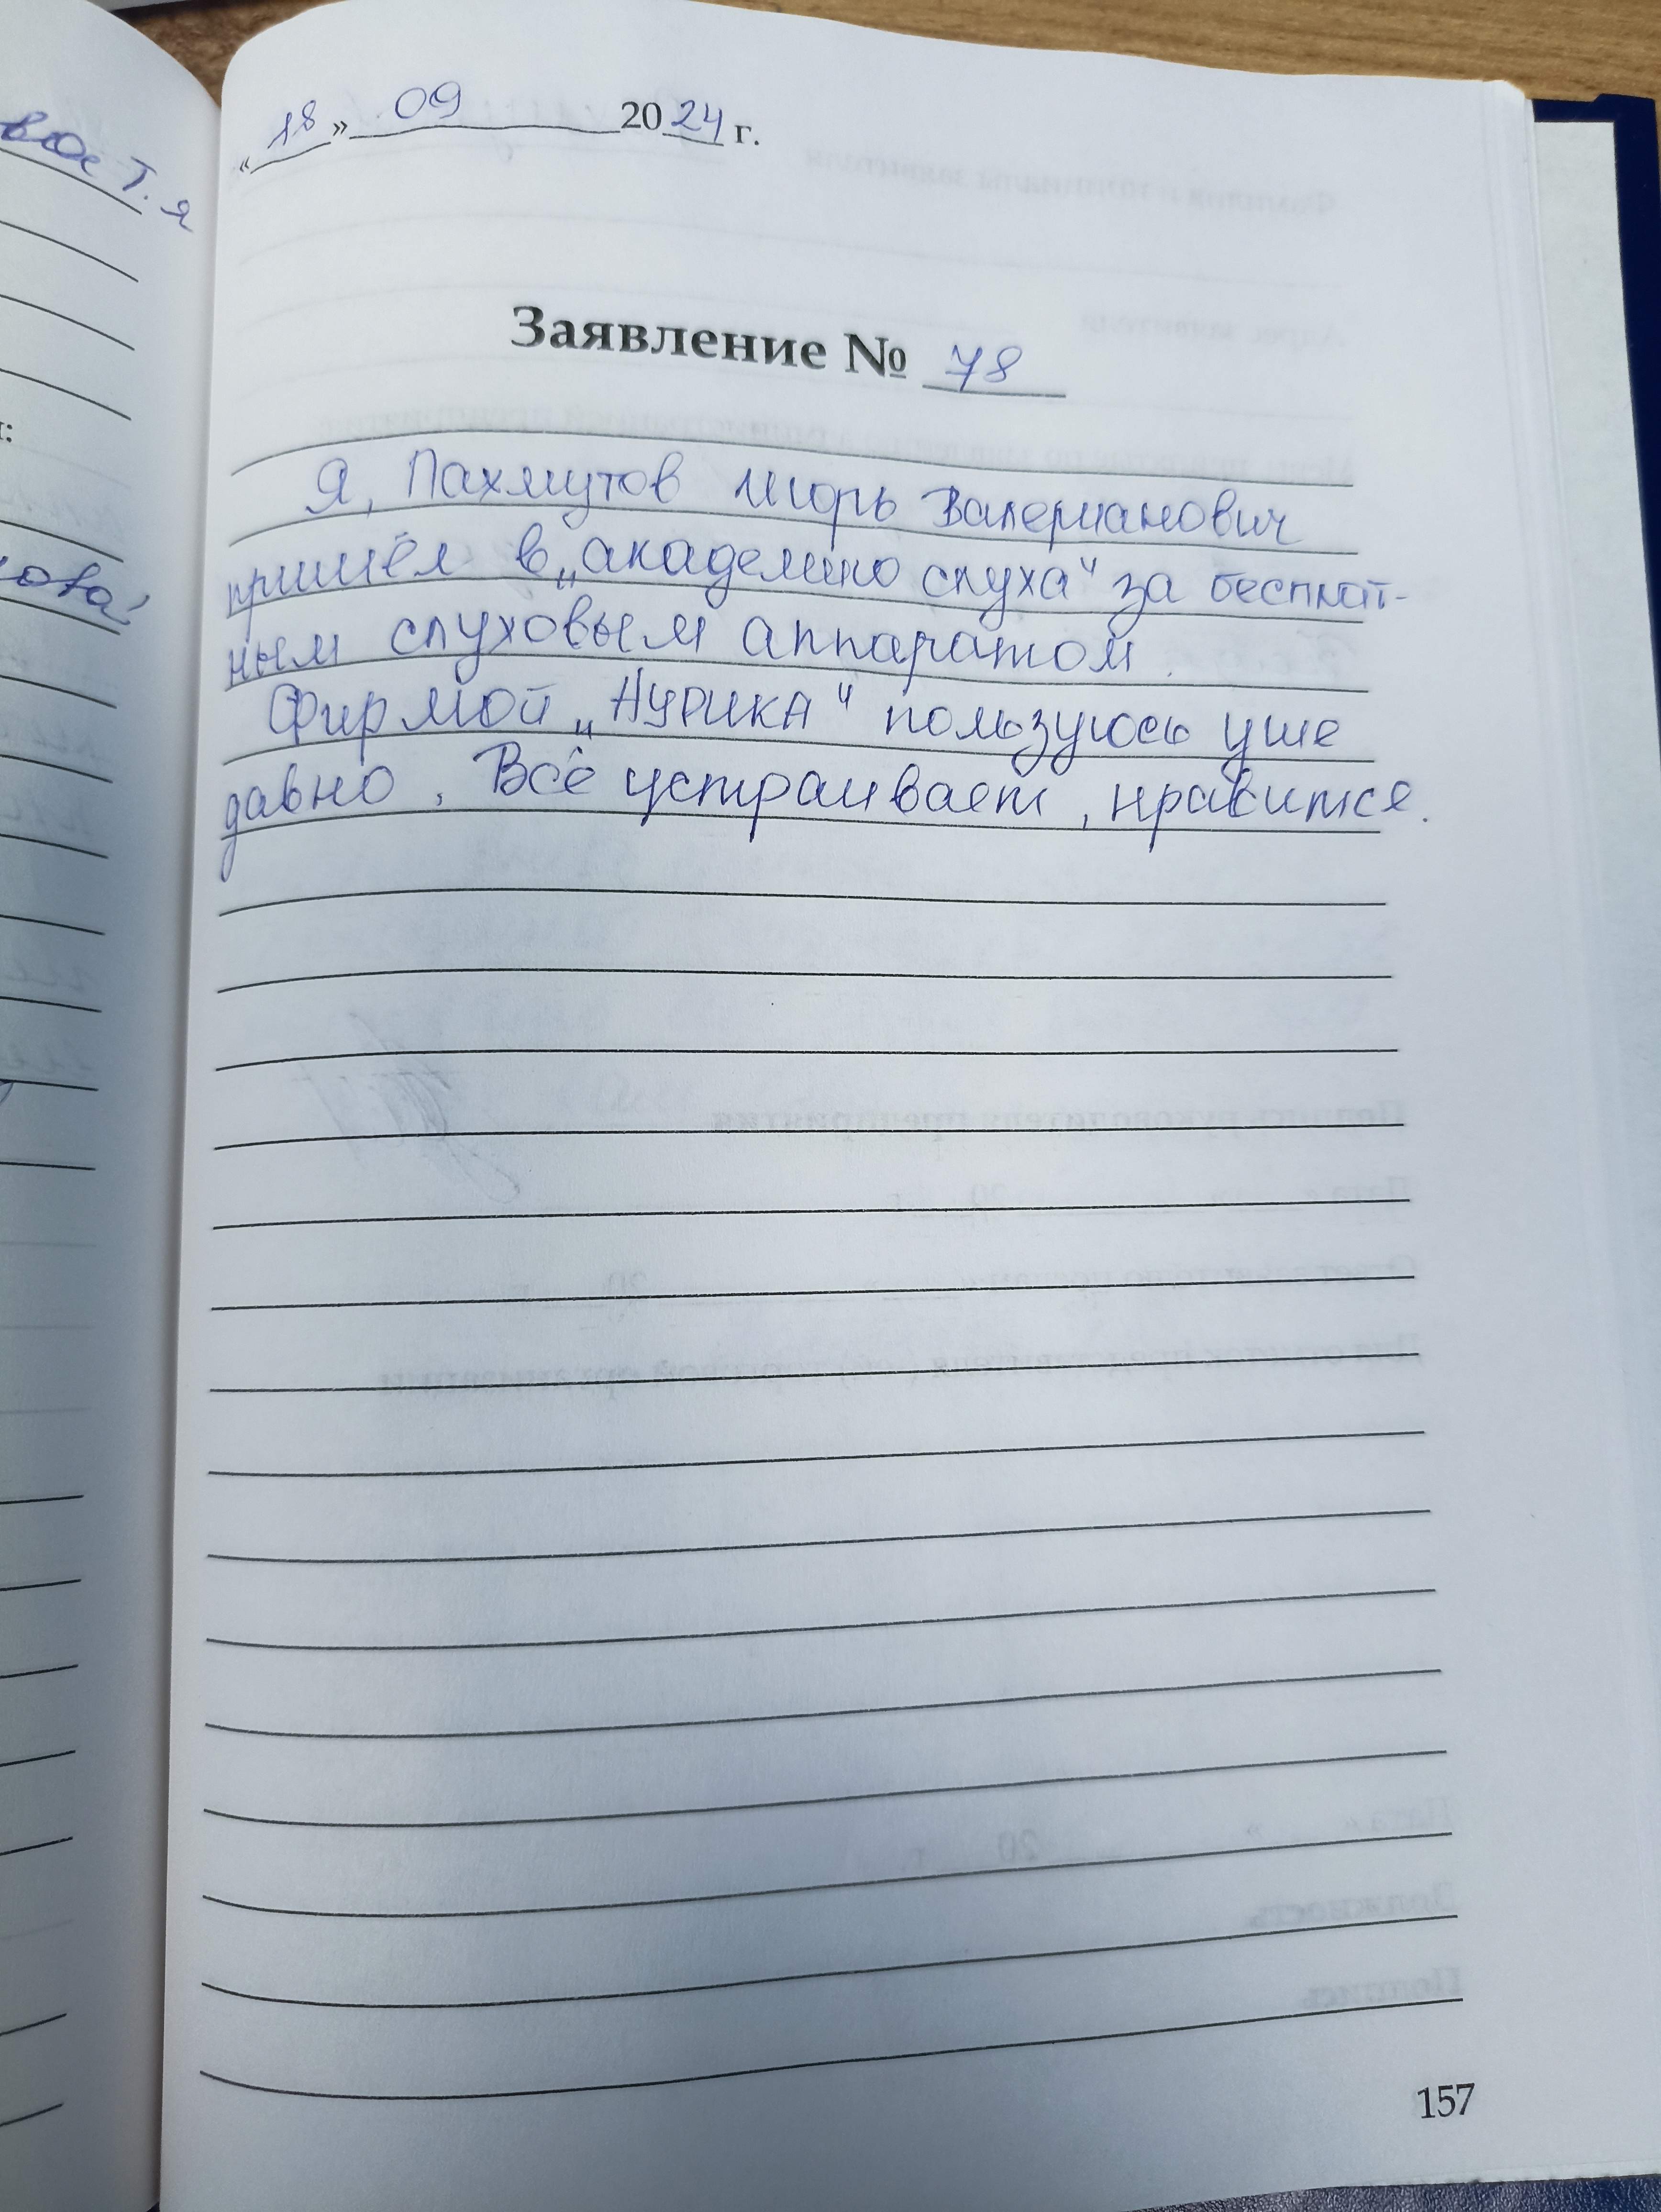 «18» 09 2024 г.
Заявление № 78
Я, Пахмутов Игорь Валерианович
пришёл в „академию слуха“ за бесплат-
ным слуховым аппаратом.
Фирмой „АУРИКА“ пользуюсь уже
давно. Всё устраивает, нравится.
157